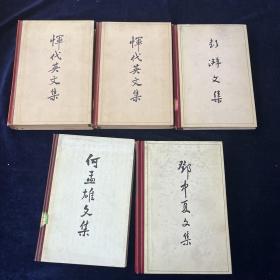 恽代英文集
恽代英文集
彭湃文集
何孟雄文集
邓中夏文集